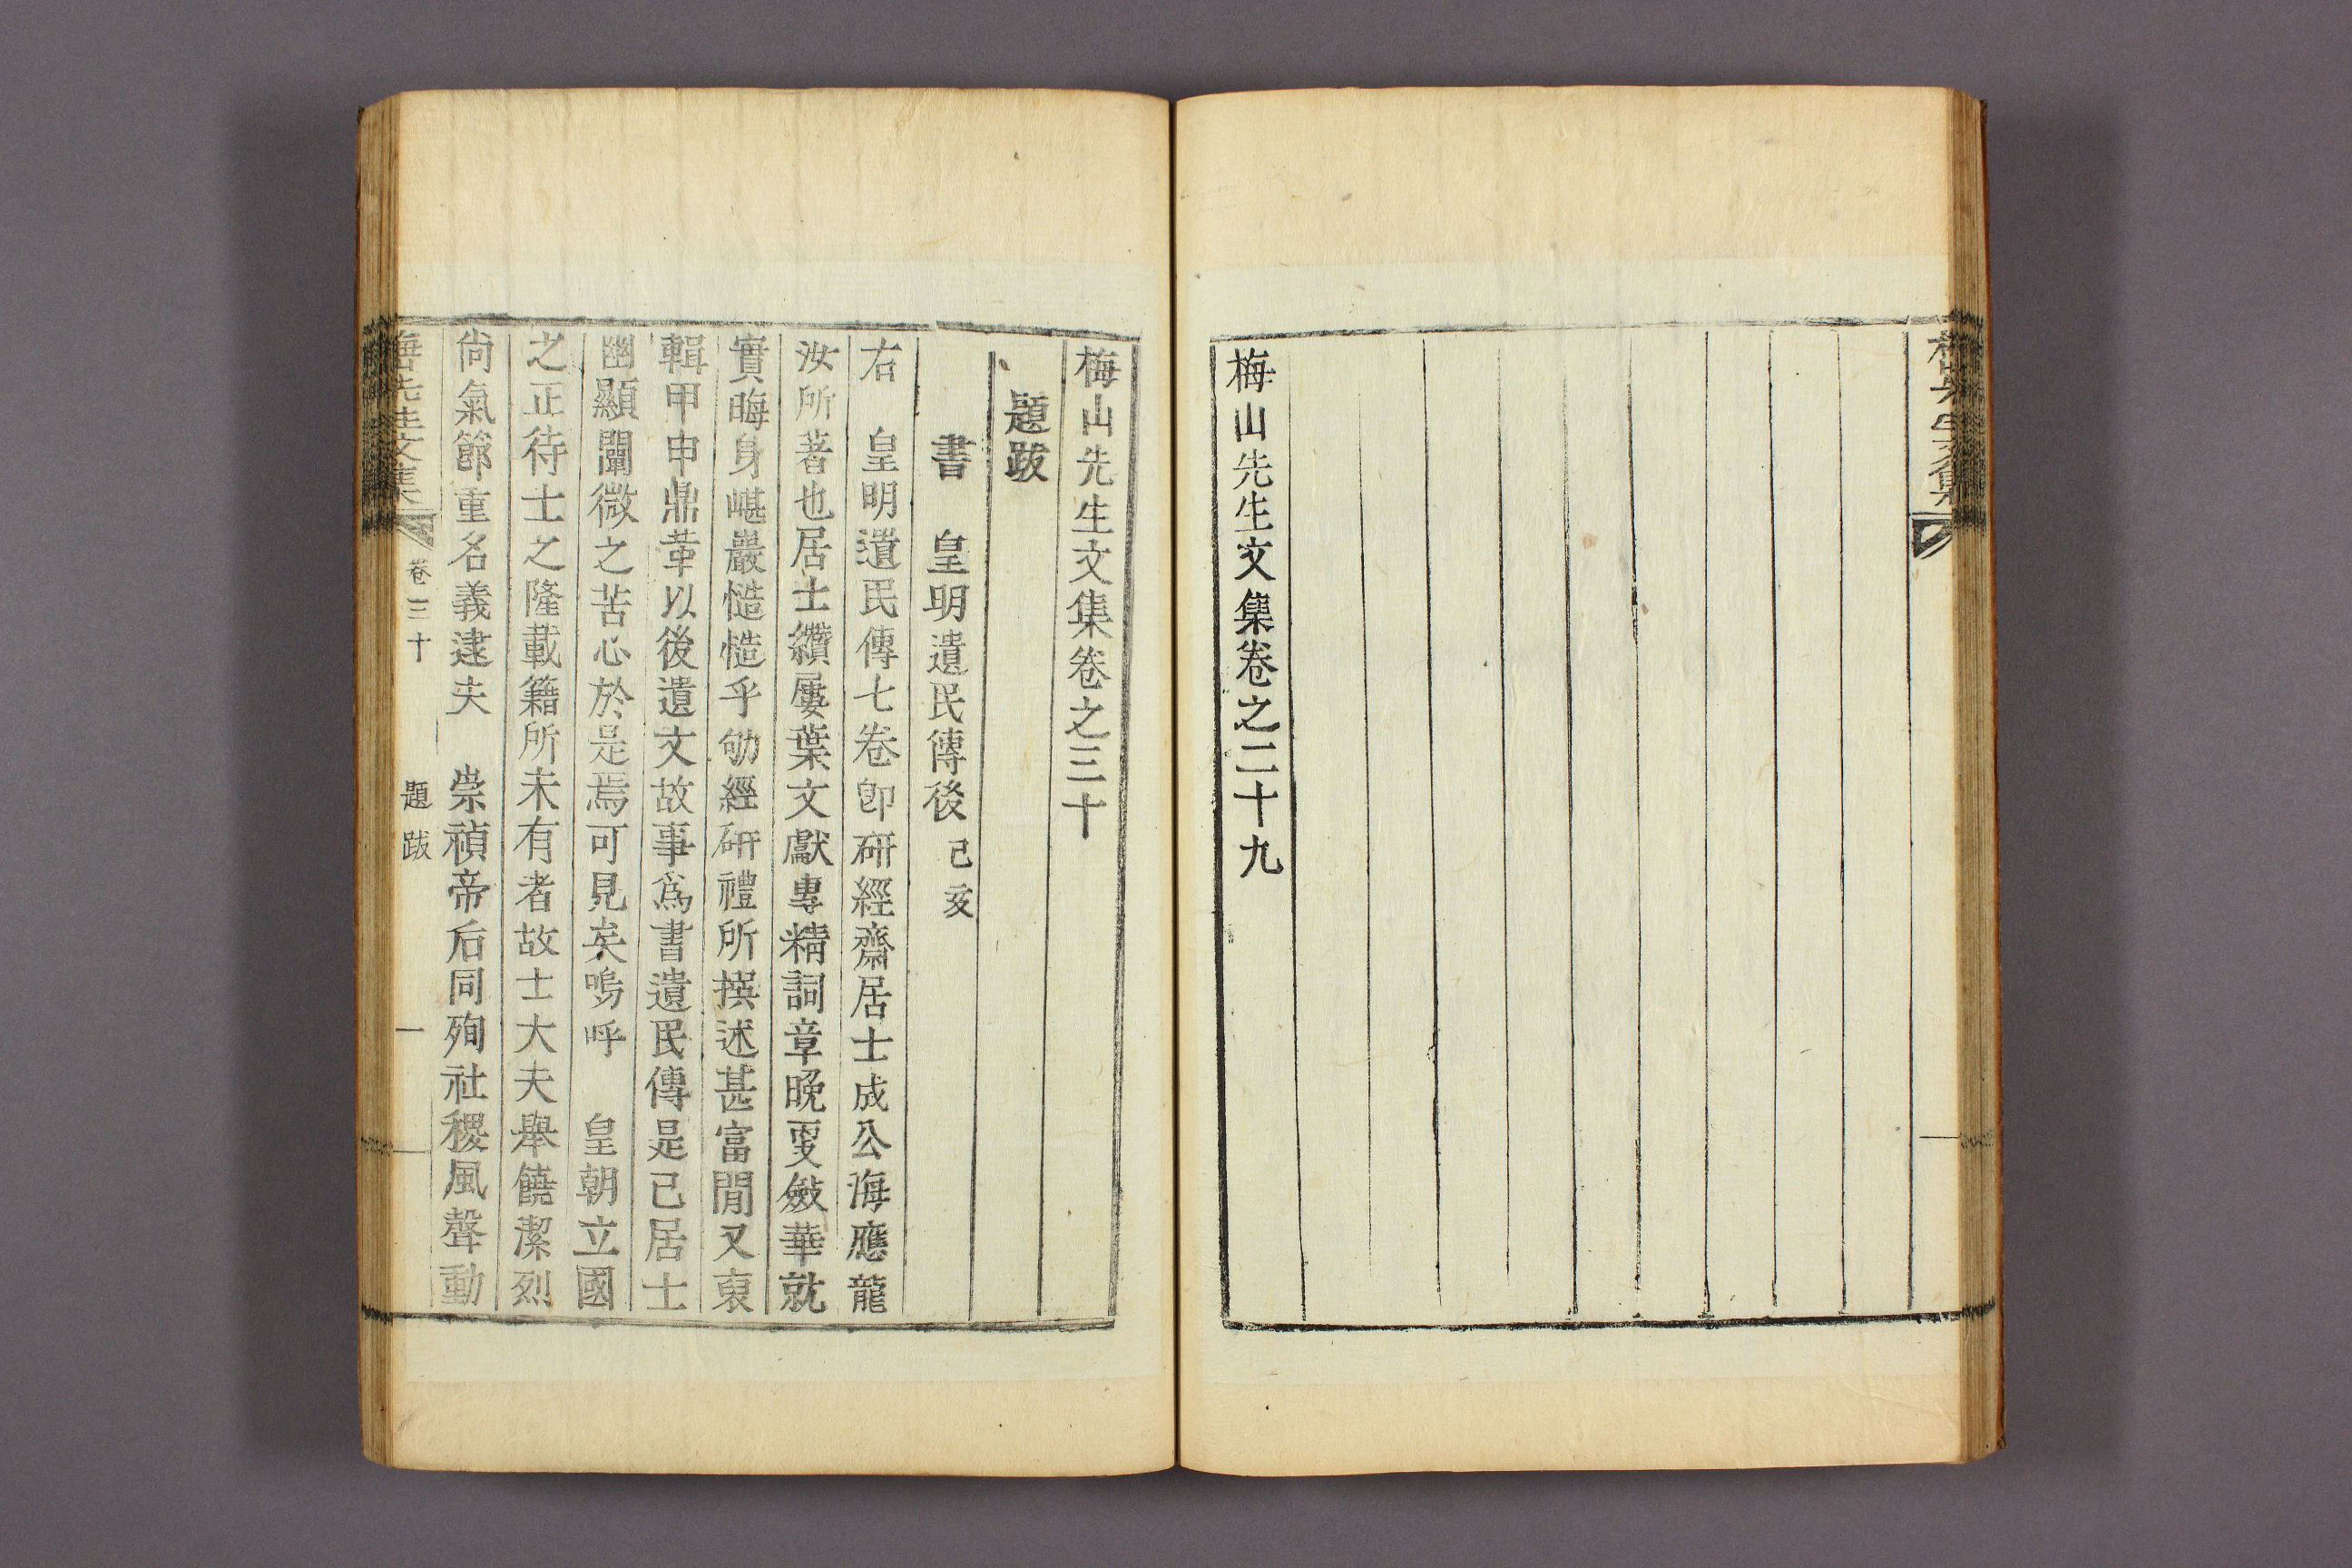 梅山先生文集卷之二十九
梅山先生文集卷之三十
題跋
書 皇明遺民傳後 己亥
右 皇明遺民傳七卷卽硏經齋居士成公海應龍
汝所著也居士纘屢葉文獻專精詞章晩更斂華就
實晦身嵁巖慥慥乎劬經硏禮所撰述甚富閒又裒
輯甲申鼎革以後遺文故事爲書遺民傳是已居士
幽顯闡微之苦心於是焉可見矣嗚呼 皇朝立國
之正待士之隆載籍所未有者故士大夫擧饒潔烈
尙氣節重名義逮夫 崇禎帝后同殉社稷風聲動
梅山先生文集 卷三十 題跋 一